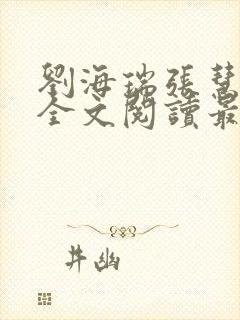 劉海瑞張慧
全文閱讀最
井幽